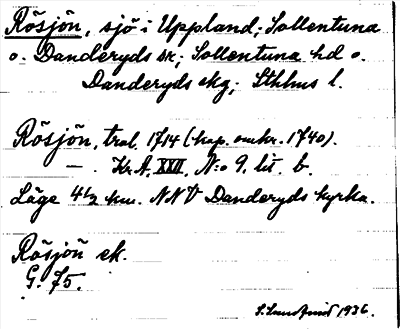 Rösjön, sjö i Uppland; Sollentuna
o. Danderyds sk; Sollentuna hd o.
Danderyds skg; Sthlms l.
Rösjön, tral. 1714 (kop. omkr. 1740).
— . Kr. A. XXII, N:o 9, lit. b.
Läge 4 1/2 km. NNV Danderyds kyrka.
Rösjön ek.
G. 75.
1936.